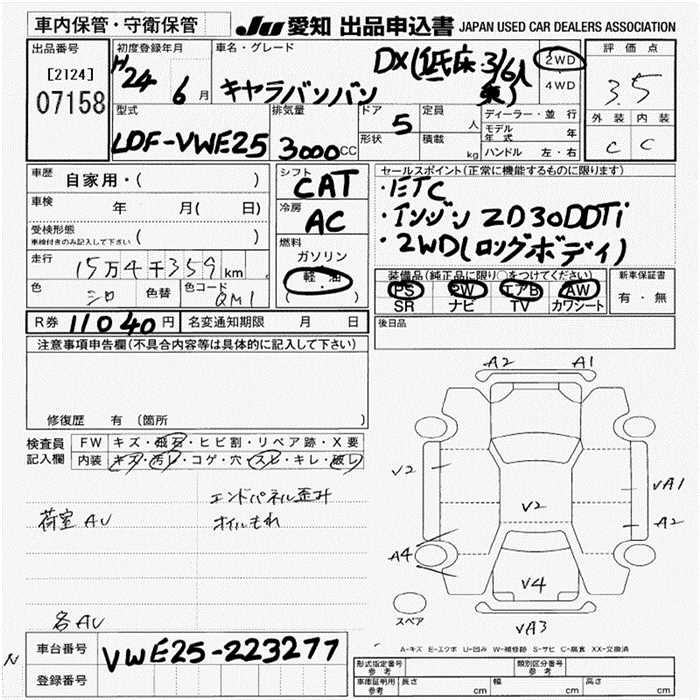 車内保管・守衛保管
JU 愛知 出品申込書 JAPAN USED CAR DEALERS ASSOCIATION
出品番号
[2124]
07158
初度登録年月
H24 6月
車名・グレード
キャラバンバン
DX(低床 3/6人乗)
2WD
4WD
評価点
3.5
外装 内装
C C
型式
LDF-VWE25
排気量
3000CC
ドア 5
形状
定員 人
積載 kg
ディーラー・並行
モデル年式 年
ハンドル 左・右
車歴 自家用・( )
車検 年 月( 日)
受検形態
車検付きのみ記入して下さい ( )
走行 15万4千359km
色 シロ 色替 色コード QM1
シフト
CAT
冷房
AC
燃料
ガソリン
軽・油
( )
セールスポイント(正常に機能するものに限ります)
・ETC
・インジン ZD30DDTi
・2WD(ロングボディ)
装備品(純正品に限り○をつけてください)
PS PW エアB AW
SR ナビ TV カワシート
新車保証書
有・無
R券 11040円 名変通知期限 月 日
後日品
注意事項申告欄(不具合内容等は具体的に記入して下さい)
修復歴 有 (箇所 )
検査員記入欄
FW キズ・飛石・ヒビ割・リペア跡・X要
内装 キズ・汚レ・コゲ・穴・スレ・キレ・破レ
エンドパネル歪み
荷室AU オイルもれ
各AU
A2 A1
V2
VA1
V2
A2
A4
V4
スペア
VA3
A-キズ E-エクボ U-凹み W-補修跡 S-サビ C-腐食 XX-交換済
N
車台番号 VWE25-223277
登録番号
形式指定番号 参考
類別区分番号 参考
車庫証明用 参考
長さ cm 幅 cm 高さ cm